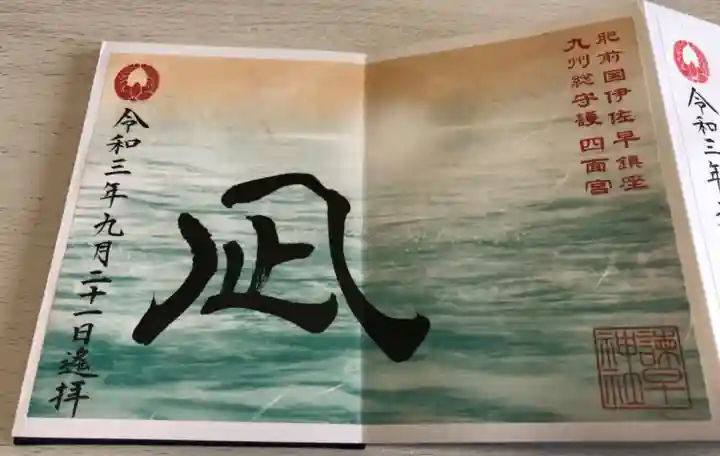 肥前国伊佐早鎮座
九州総守護 四面宮
諫早
神社
凪
令和三年九月二十一日遙拝
令和三年